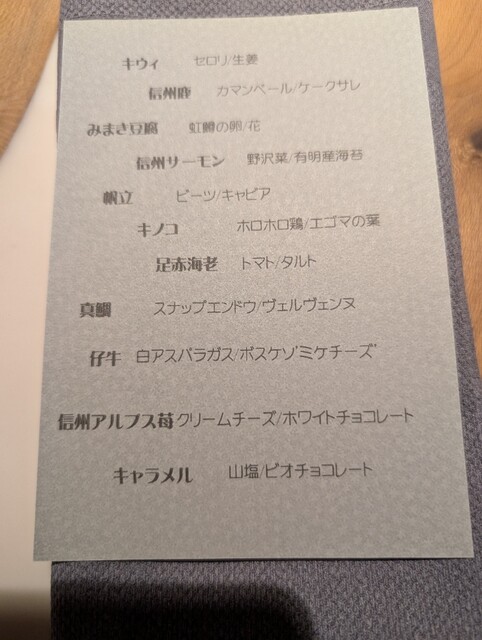 キウィ セロリ/生姜
信州鹿 カマンベール/ケークサレ
みまき豆腐 虹鱒の卵/花
信州サーモン 野沢菜/有明産海苔
帆立 ビーツ/キャビア
キノコ ホロホロ鶏/エゴマの葉
足赤海老 トマト/タルト
真鯛 スナップエンドウ/ヴェルヴェンヌ
仔牛 白アスパラガス/ボスケソ"ミケチーズ"
信州アルプス苺 クリームチーズ/ホワイトチョコレート
キャラメル 山塩/ビオチョコレート